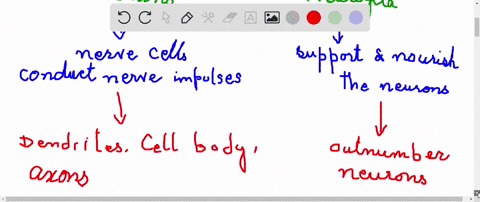 nerve cells
conduct nerve impulses
Dendrites. Cell body,
axons
support & nourish
the neurons
outnumber
neurons